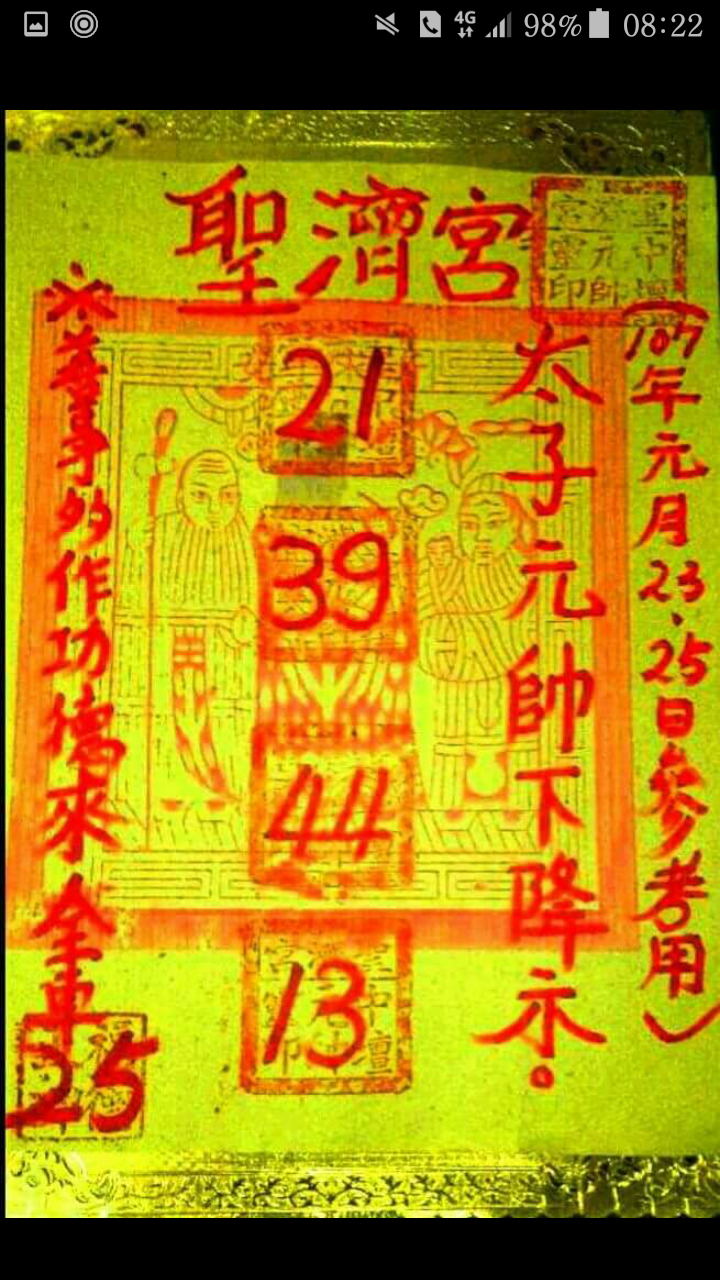 4G 98% 08:22
聖濟宮
聖濟宮
中壇元帥
靈印
(107年元月23、25日參考用)
太子元帥下降示。
21
39
44
13
※善事的作功德來全車
25